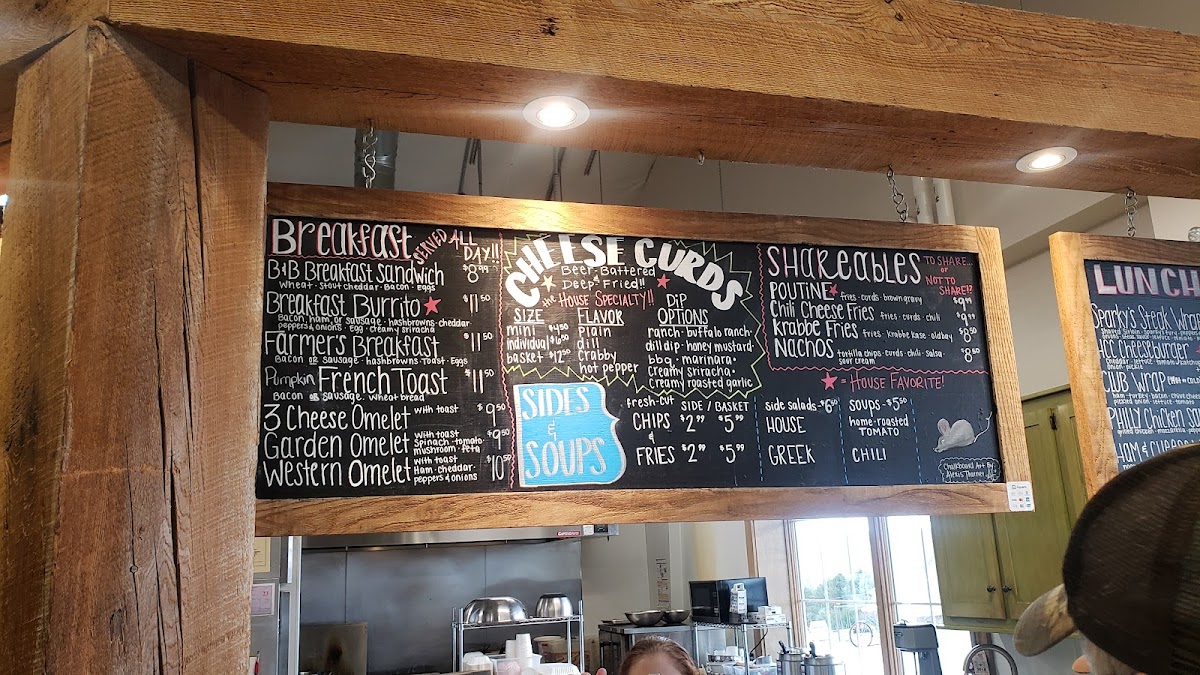 Breakfast SERVED ALL DAY!!
B&B Breakfast Sandwich $8.99
wheat · stout cheddar · Bacon · eggs
Breakfast Burrito $11.50
Bacon, ham, or sausage · hashbrowns · cheddar
peppers & onions · egg · creamy sriracha
Farmer's Breakfast $11.50
Bacon or sausage · hashbrowns · Toast · Eggs
Pumpkin French Toast $11.50
Bacon or sausage · wheat bread
3 Cheese Omelet with toast $9.50
Garden Omelet with toast $9.50
Spinach · tomato
mushroom · feta
Western Omelet with toast $10.50
Ham · cheddar
peppers & onions
CHEESE CURDS
Beer-Battered
Deep-Fried!!
the HOUSE SPECIALTY!!
SIZE
mini $4.50
individual $6.50
basket $12.50
FLAVOR
Plain
dill
Crabby
hot pepper
Dip OPTIONS
ranch · buffalo ranch
dill dip · honey mustard
bbq · marinara
creamy sriracha
creamy roasted garlic
SHAReABLES TO SHARE... or NOT TO SHARE!?
POUTINE fries · curds · brown gravy $9.99
Chili Cheese Fries fries · curds · chili $9.99
Krabbe Fries fries · krabbe kase · old bay $8.50
Nachos tortilla chips · curds · chili · salsa $8.50
sour cream
= HOUSE FAVORITE!
SIDES & SOUPS
fresh-cut SIDE / BASKET
CHIPS $2.99 $5.99
&
FRIES $2.99 $5.99
side salads - $6.50
HOUSE
GREEK
SOUPS - $5.50
home-roasted
TOMATO
CHILI
Chalkboard Art By
LUNCH
Sparky's Steak Wrap
HOT Cheeseburger
CLUB WRAP
PHILLY Chicken
HAM &